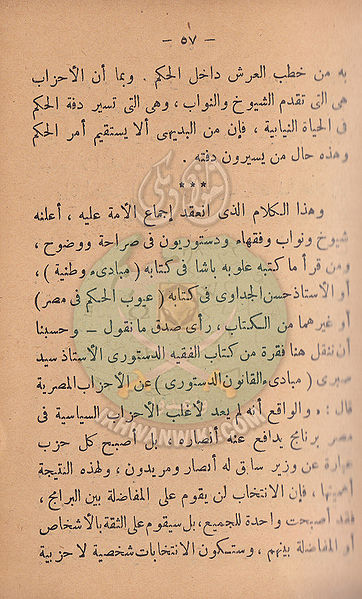 — ٥٧ —
به من خطب العرش داخل الحكم . وبما أن الأحزاب
هى التى تقدم الشيوخ والنواب ، وهى التى تسير دفة الحكم
فى الحياة النيابية ، فإن من البديهى ألا يستقيم أمر الحكم
وهذه حال من يسيرون دفته .
***
وهذا الكلام الذى انعقد إجماع الأمة عليه ، أعلنه
شيوخ ونواب وفقهاء ودستوريون فى صراحة ووضوح ،
ومن قرأ ما كتبه علوبه باشا فى كتابه ( مبادىء وطنية ) ،
أو الأستاذ حسن الجداوى فى كتابه ( عيوب الحكم فى مصر )
أو غيرهما من الكتاب ، رأى صدق ما نقول — وحسبنا
أن ننقل هنا فقرة من كتاب الفقيه الدستورى الأستاذ سيد
صبرى ( مبادىء القانون الدستورى ) عن الأحزاب المصرية
قال : « والواقع أنه لم يعد لأغلب الأحزاب السياسية فى
مصر برنامج يدافع عنه أنصاره ، بل أصبح كل حزب
عبارة عن وزير سابق له أنصار ومريدون ، ولهذه النتيجة
أهميتها ، فإن الانتخاب لن يقوم على المفاضلة بين البرامج ،
فقد أصبحت واحدة للجميع ، بل سيقوم على الثقة بالأشخاص
أو المفاضلة بينهم ، وستكون الانتخابات شخصية لا حزبية
IKHWANWIKI.COM